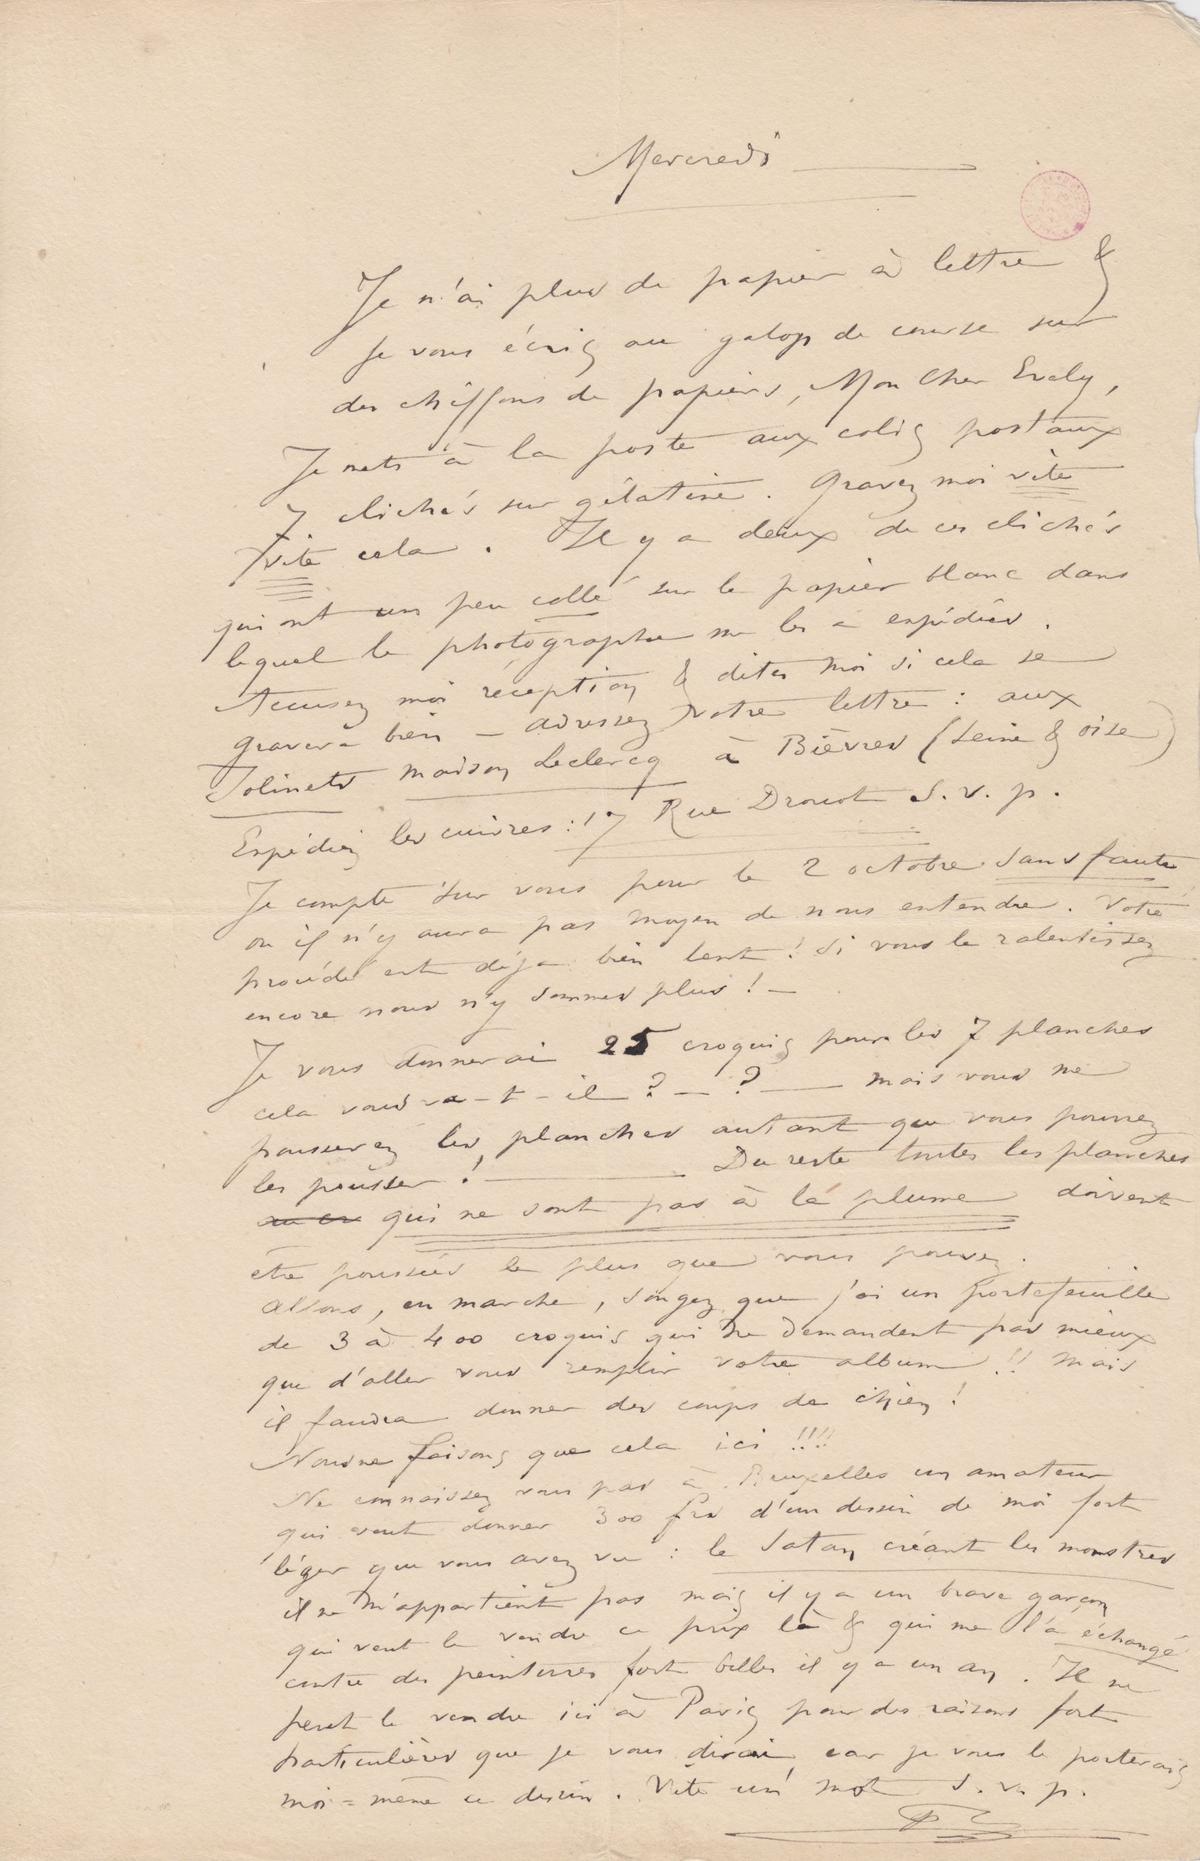 Mercredi
Je n'ai plus de papier à lettre &
je vous écris au galop de course sur
des chiffons de papiers, Mon Cher Evely,
Je mets à la poste aux colis postaux
7 clichés sur gélatine. Gravez moi vite
vite cela. Il y a deux de ces clichés
qui ont un peu collé sur le papier blanc dans
lequel le photographe me les a expédiés.
Accusez moi réception & dites moi si cela se
gravera bien — adressez votre lettre : aux
Jolinets maison Leclercq à Bièvres (Seine & oise)
Expédiez les cuivres : 17 Rue Drouot S. v. p.
Je compte sur vous pour le 2 octobre sans faute
ou il n'y aura pas moyen de nous entendre. Votre
procédé est déja bien lent ! Si vous le ralentissez
encore nous n'y sommes plus ! —
Je vous donnerai 25 croquis pour les 7 planches
cela vous va-t-il ? — ? — mais vous me
pousserez les planches autant que vous pourrez
les pousser ! — Du reste toutes les planches
qui ne sont pas à la plume doivent
être poussées le plus que vous pouvez.
allons, en marche, songez que j'ai un portefeuille
de 3 à 400 croquis qui ne demandent pas mieux
que d'aller vous remplir votre album !! Mais
il faudra donner des coups de chien !
Nous ne faisons que cela ici !!!!
Ne connaissez vous pas à Bruxelles un amateur
qui veut donner 300 frs d'un dessin de moi fort
léger que vous avez vu : le Satan créant les monstres
il ne m'appartient pas mais il y a un brave garçon
qui veut le vendre ce prix là & qui me l'a échangé
contre des peintures fort belles il y a un an. Il ne
peut le vendre ici à Paris pour des raisons fort
particulières que je vous dirai car je vous le porterais
moi=même ce dessin. Vite un mot S. v. p.